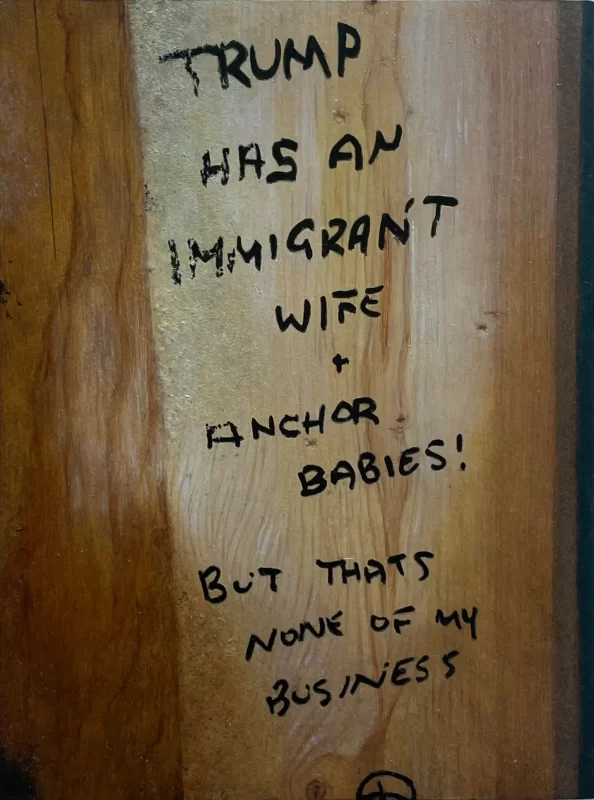 TRUMP
HAS AN
IMMIGRANT
WIFE
+
ANCHOR
BABIES!
BUT THATS
NONE OF MY
BUSINESS